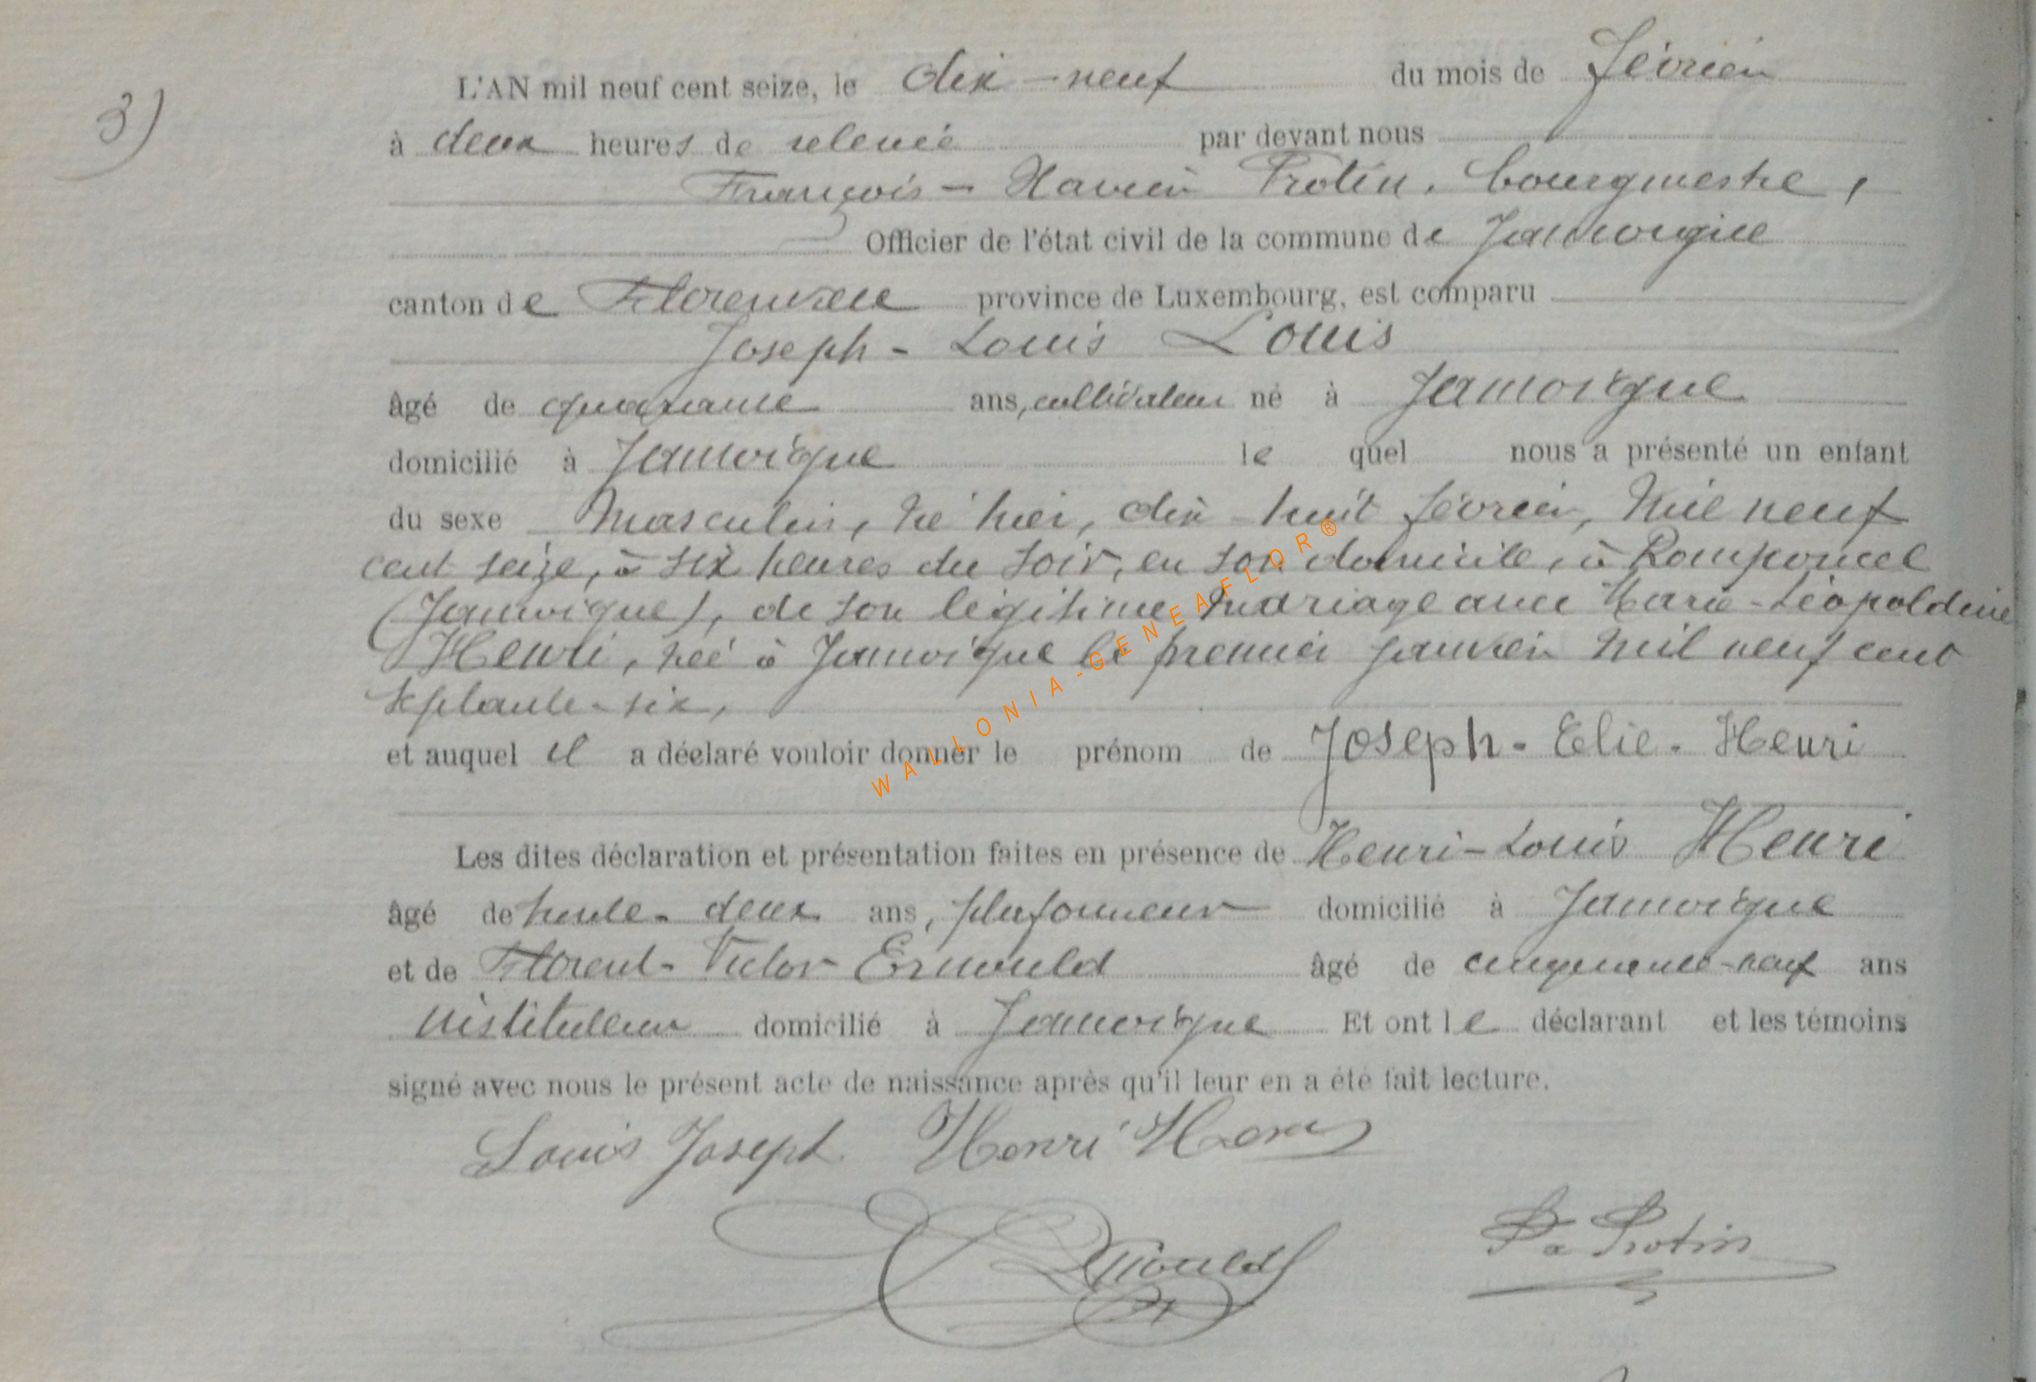 3)
L'AN mil neuf cent seize, le dix-neuf du mois de février
à deux heures de relevée par devant nous
François-Xavier Protin, bourgmestre,
Officier de l'état civil de la commune de Jamoigne
canton de Florenville province de Luxembourg, est comparu
Joseph-Louis Louis
âgé de quarante ans, cultivateur né à Jamoigne
domicilié à Jamoigne le quel nous a présenté un enfant
du sexe masculin, né hier, dix-huit février, mil neuf
cent seize, à six heures du soir, en son domicile, à Romponcel
(Jamoigne), de son légitime mariage avec Marie-Léopoldine
Henri, née à Jamoigne le premier janvier mil neuf cent
septante-six,
et auquel il a déclaré vouloir donner le prénom de Joseph-Elie-Henri
Les dites déclaration et présentation faites en présence de Henri-Louis Henri
âgé de trente-deux ans, plafonneur domicilié à Jamoigne
et de Florent-Victor Ernould âgé de cinquante-neuf ans
instituteur domicilié à Jamoigne Et ont le déclarant et les témoins
signé avec nous le présent acte de naissance après qu'il leur en a été fait lecture.
Louis Joseph Henri Henri
Ernould
Protin
WALLONIA-GENEAFLOR®